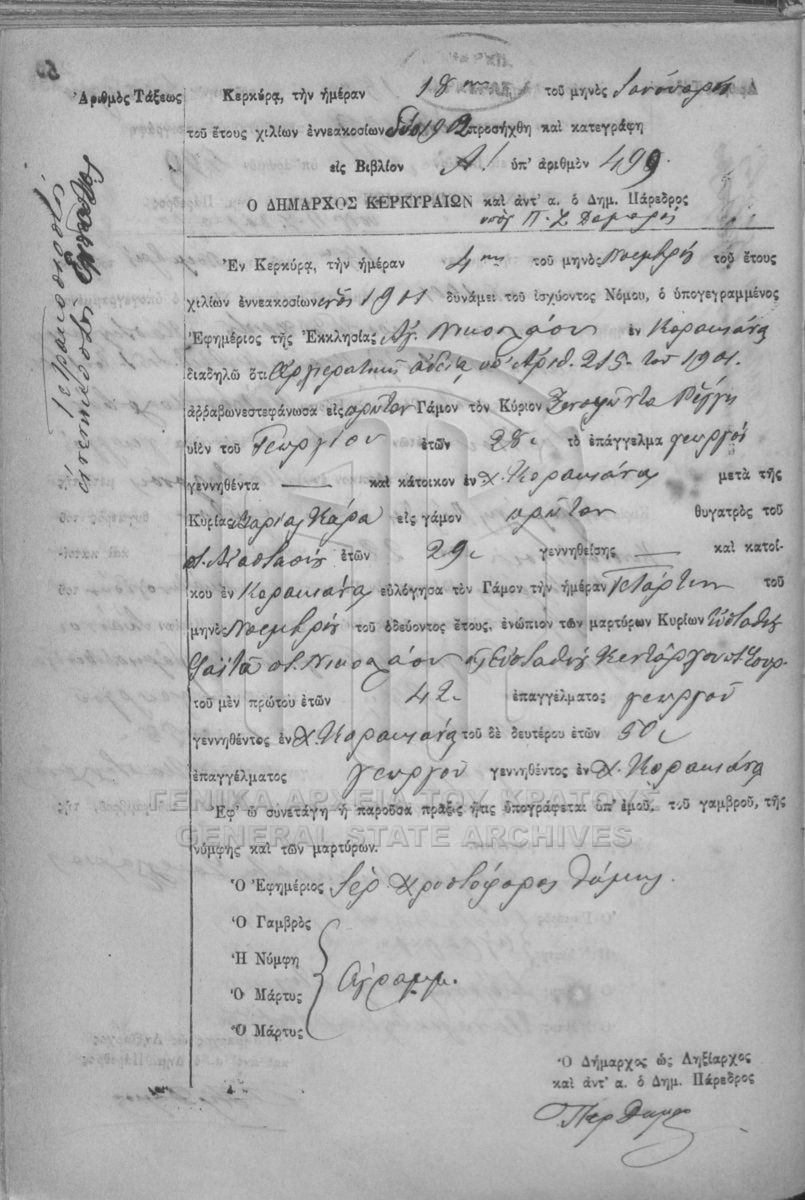 Ἀριθμὸς Τάξεως
Κερκύρᾳ, τὴν ἡμέραν 18ην τοῦ μηνὸς Ἰανουαρίου
τοῦ ἔτους χιλίων ἐννεακοσίων δύο 1902 προσήχθη καὶ κατεγράφη
εἰς Βιβλίον Α! ὑπ' ἀριθμὸν 499
Ο ΔΗΜΑΡΧΟΣ ΚΕΡΚΥΡΑΙΩΝ καὶ ἀντ' α. ὁ Δημ. Πάρεδρος
Ἐν Κερκύρᾳ, τὴν ἡμέραν 4ην τοῦ μηνὸς Νοεμβρίου τοῦ ἔτους
χιλίων ἐννεακοσίων ἑνὸς 1901 δυνάμει τοῦ ἰσχύοντος Νόμου, ὁ ὑπογεγραμμένος
Ἐφημέριος τῆς Ἐκκλησίας Ἁγ. Νικολάου ἐν Κορακιάνᾳ
διαδηλῶ ὅτι Ἀρχιερατικῇ ἀδείᾳ ὑπ' Ἀριθ. 215. τοῦ 1901.
ἀρραβωνεστεφάνωσα εἰς πρῶτον Γάμον τὸν Κύριον Ξενοφῶντα
υἱὸν τοῦ Γεωργίου ἐτῶν 28 τὸ ἐπάγγελμα γεωργοῦ
γεννηθέντα — καὶ κάτοικον ἐν χ. Κορακιάνα μετὰ τῆς
Κυρίας Μαρίας Κάρα εἰς γάμον πρῶτον θυγατρὸς τοῦ
π. Ἀναστασίου ἐτῶν 29 γεννηθείσης — καὶ κατοί-
κου ἐν Κορακιάνα εὐλόγησα τὸν Γάμον τὴν ἡμέραν Τετάρτην τοῦ
μηνὸς Νοεμβρίου τοῦ ὁδεύοντος ἔτους, ἐνώπιον τῶν μαρτύρων Κυρίων Εὐσταθίου
π. Νικολάου καὶ Εὐσταθίου
τοῦ μὲν πρώτου ἐτῶν 42 ἐπαγγέλματος γεωργοῦ
γεννηθέντος ἐν χ. Κορακιάνα τοῦ δὲ δευτέρου ἐτῶν 50
ἐπαγγέλματος γεωργοῦ γεννηθέντος ἐν χ. Κορακιάνα
Ἐφ' ᾧ συνετάγη ἡ παροῦσα πρᾶξις ἥτις ὑπογράφεται ὑπ' ἐμοῦ, τοῦ γαμβροῦ, τῆς
νύμφης καὶ τῶν μαρτύρων.
ΓΕΝΙΚΑ ΑΡΧΕΙΑ ΤΟΥ ΚΡΑΤΟΥΣ
GENERAL STATE ARCHIVES
Ὁ Ἐφημέριος Ἱερ Χριστόφορος
Ὁ Γαμβρὸς
Ἡ Νύμφη
Ὁ Μάρτυς Ἀγράμμ.
Ὁ Μάρτυς
Ὁ Δήμαρχος ὡς Ληξίαρχος
καὶ ἀντ' α. ὁ Δημ. Πάρεδρος